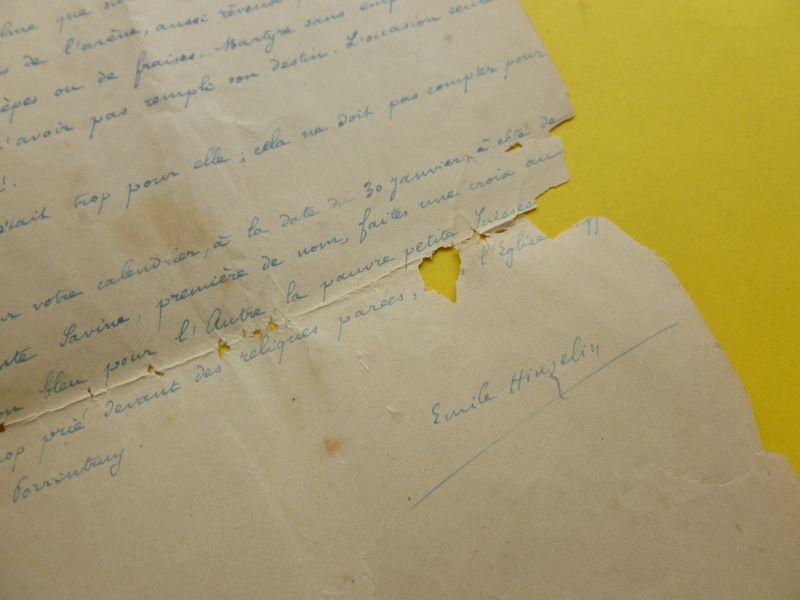 que
de l'arène, aussi rêveuse,
ou de fraises. Martyre sans
avoir pas rempli son destin. L'occasion seule
était trop pour elle ; cela ne doit pas compter pour
votre calendrier, à la date du 30 janvier, à côté de
Savine, première de nom, faites une croix au
bleu pour l'Autre la pauvre petite Suissesse
prié devant des reliques parées, l'Eglise
Porrentruy.
Emile Hinzelin